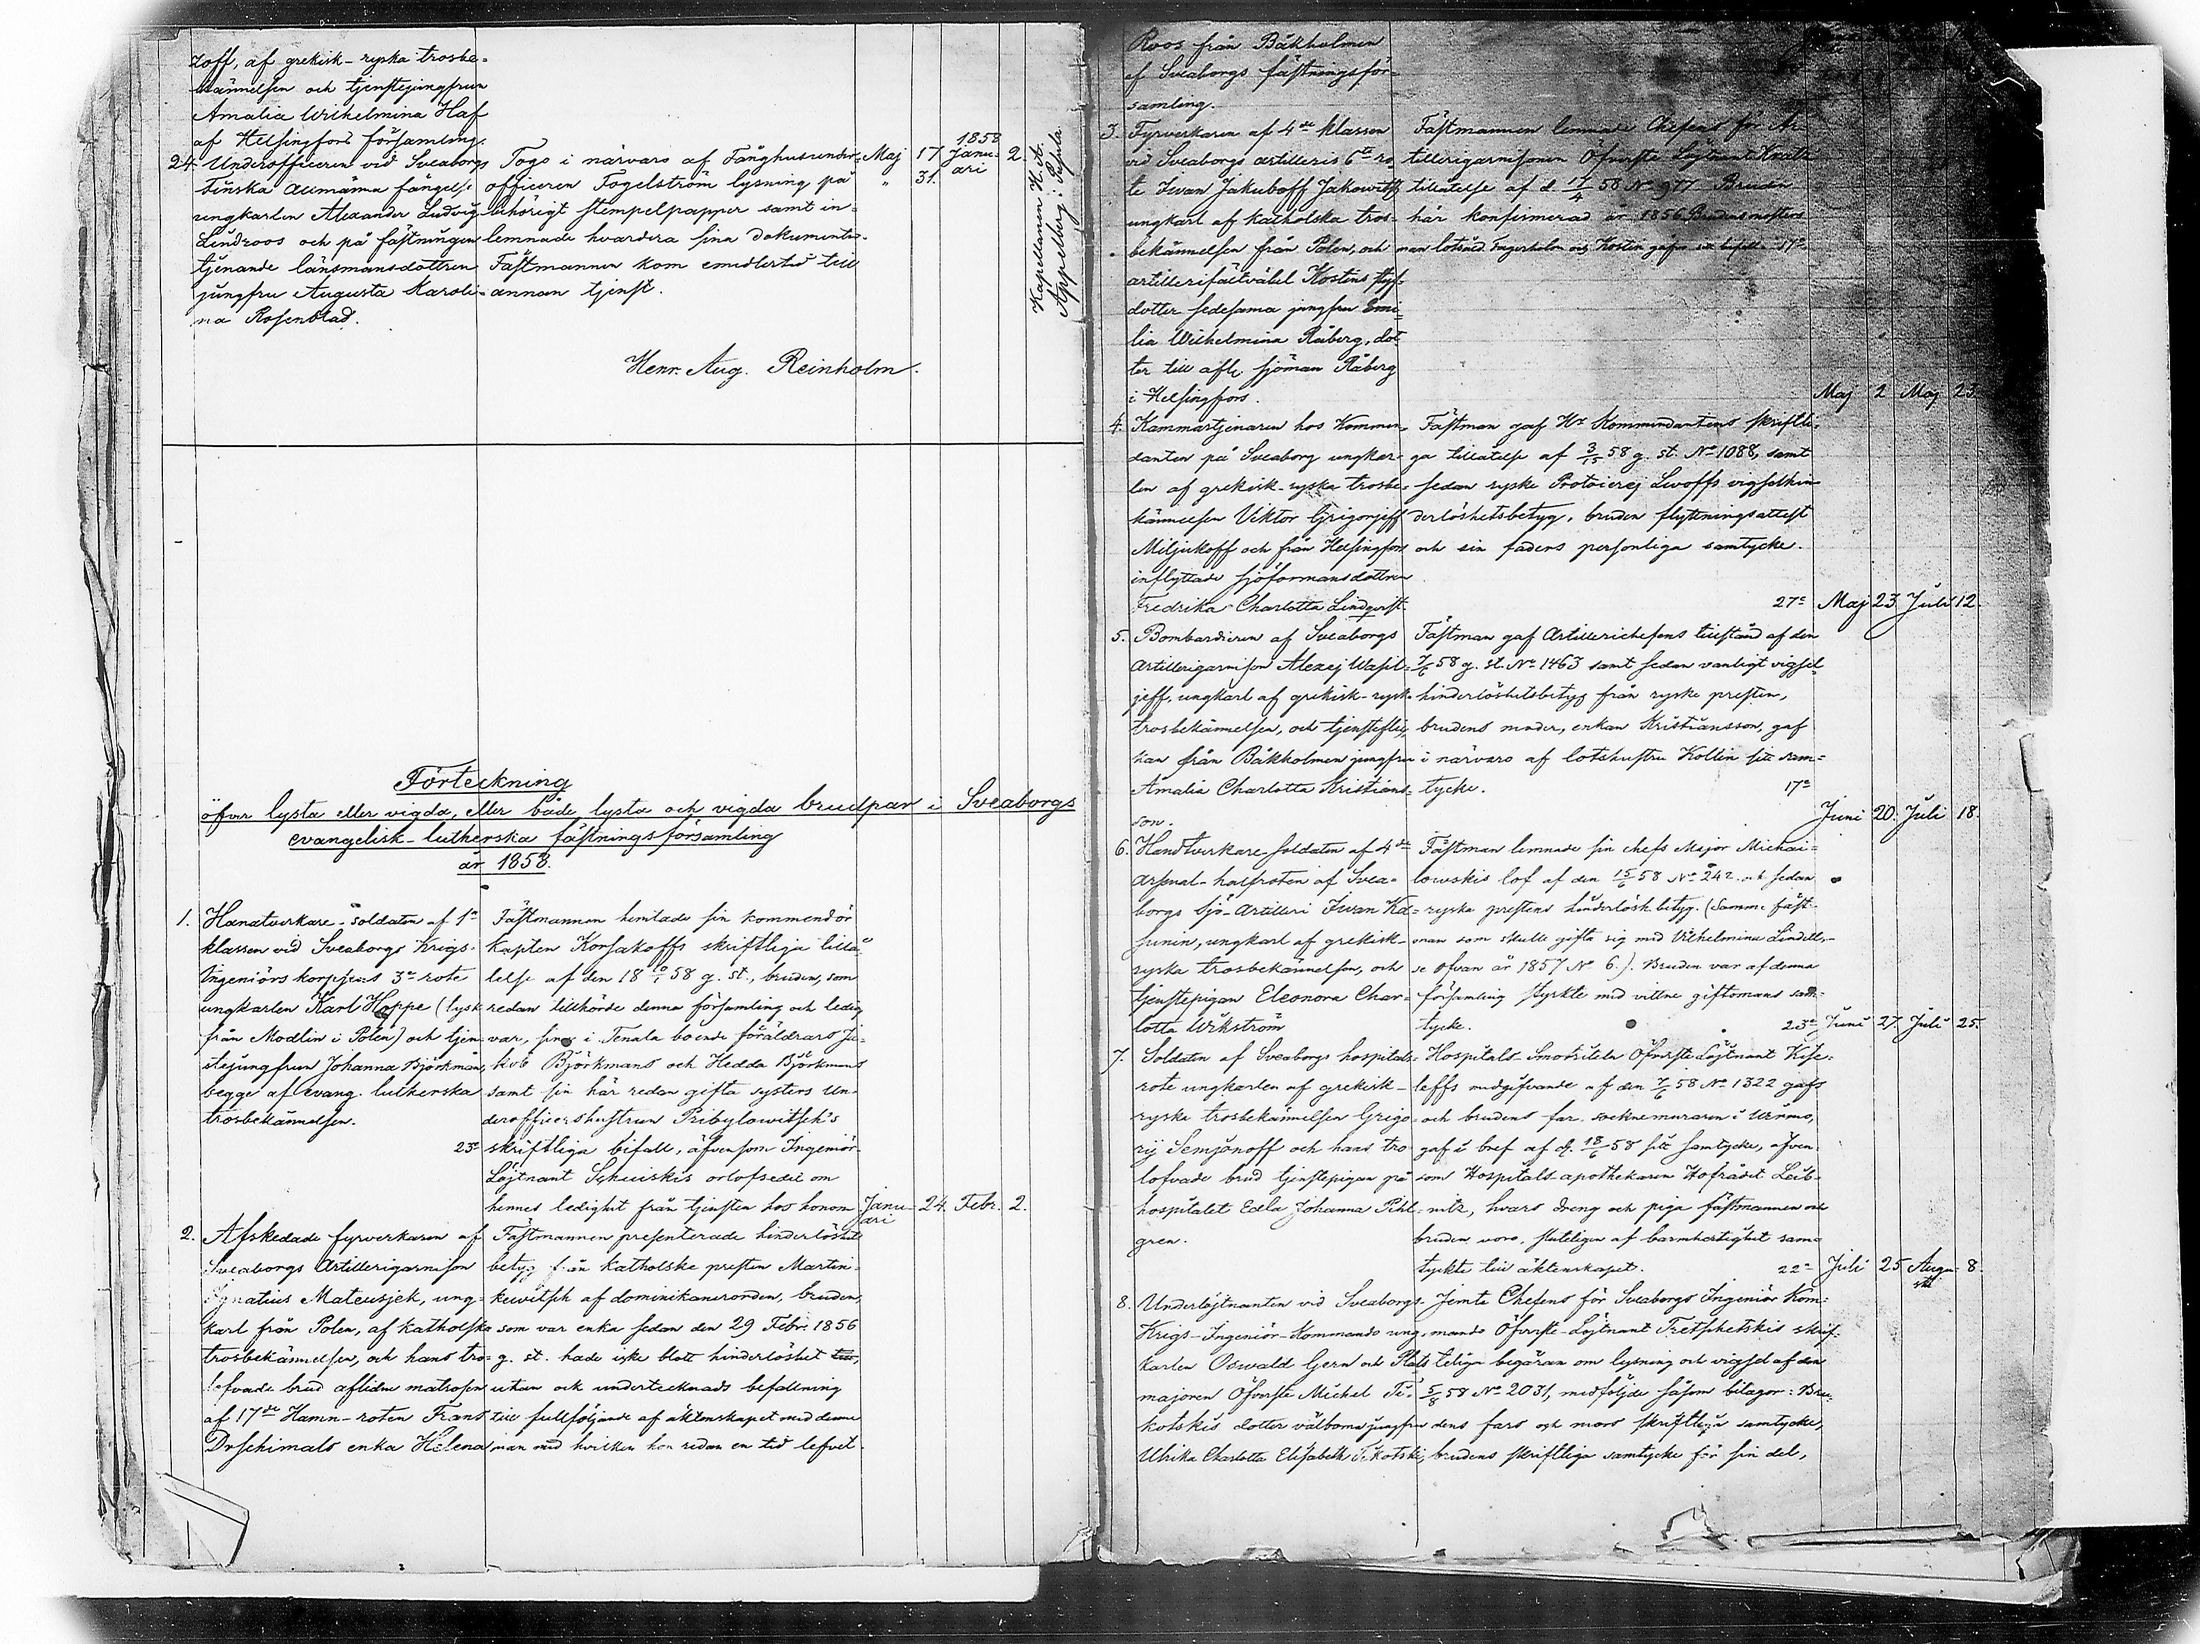 zoff, af grekisk-ryska trosbe-
kännelsen och tjenstejungfrun
Amalia Wilhelmina Haf
af Helsingfors församling.
24. Underofficeren vid Sveaborgs
finska allmänna fängelse
ungkarlen Alexander Ludvig
Lindroos och på fästningen
tjenande länsmansdottren
jungfru Augusta Karoli-
na Rosenblad.
Togo i närvaro af Fånghusunder-
officeren Fogelström lysning på
behörigt stempelpapper samt in-
lemnade hvardera sina dokumenter.
Fästmannen kom emedlertid till
annan tjenst.
Maj 17
" 31.
1858
Janu-
ari
2.
Kapellanen H. A.
Appelberg i
Henr. Aug. Reinholm.
Förteckning
öfver lysta eller vigda, eller både lysta och vigda brudpar i Sveaborgs
evangelisk-lutherska fästningsförsamling
år 1858.
1. Handtverkare-soldaten af 1a
klassen vid Sveaborgs Krigs-
Ingeniörskorpsens 3e rote
ungkarlen Karl Hoppe (tysk
från Modlin i Polen) och tjen-
stejungfrun Johanna Björkman,
begge af evang. lutherska
trosbekännelsen.
23e
Fästmannen hemtade sin kommendör
Kapten Korsakoffs skriftliga tillå-
telse af den 18 10/1 58 g. st., bruden, som
redan tillhörde denna församling och ledig
var, sina i Tenala boende föräldrars Ja-
kob Björkmans och Hedda Björkmans
samt sin här redan gifta systers Un-
derofficershustrun Pribylowitsch's
skriftliga bifall, äfvensom Ingeniör-
Löjtnant Schuiskis orlofsedel om
hennes ledighet från tjensten hos honom
Janu-
ari 24. Febr. 2.
2. Afskedade fyrverkaren af
Sveaborgs Artillerigarnison
Ignatius Mateusjek, ung-
karl från Polen, af katholska
trosbekännelsen, och hans tro-
lofvade brud aflidne matrosen
af 17de Hamn-roten Frans
Drschimals enka Helena
Fästmannen presenterade hinderlöshets
betyg från katholske presten Martin-
kewitsch af dominikanerorden, bruden,
som var enka sedan den 29 Febr. 1856
g. st. hade icke blott hinderlöshet
utan ock undertecknads befallning
till fullföljande af äktenskapet med denne
man med hvilken hon redan en tid lefvat.
Roos från Bäkholmen
af Sveaborgs fästningsför-
samling.
3. Fyrverkaren af 4de klassen
vid Sveaborgs artilleris 6te ro-
te Iwan Jakuboff Jakowitz
ungkarl af katholska tros-
bekännelsen från Polen, och
artillerifältväbel Kostins styf-
dotter fedesama jungfru Emi-
lia Wilhelmina Råberg, dot-
ter till aflr sjöman Råberg
i Helsingfors.
Fästmannen lemnade Chefens för Ar-
tillerigarnisonen Öfverste Löjtnant
tillåtelse af d. 17/4 58 No 977. Bruden
här konfirmerad år 1856. Brudens mosters
man lotsåld. Fagerholm och Kostin gåfvo sin bifall. 17e
Maj 2 Maj 23.
4. Kammartjenaren hos Kommen-
danten på Sveaborg ungkar-
len af grekisk-ryska trosbe-
kännelsen Viktor Grigorjeff
Miljukoff och från Helsingfors
inflyttade sjöformansdottren
Fredrika Charlotta Lindqvist.
Fästman gaf Hr Kommendantens skriftli-
ga tillåtelse af 3/15 58 g. st. No 1088, samt
sedan ryske Protoierej Lwoffs vigselhin-
derlöshetsbetyg, bruden flyttningsattest
och sin faders personliga samtycke.
27e Maj 23 Juli 12.
5. Bombardieren af Sveaborgs
Artillerigarnison Alexej Wasil-
jeff, ungkarl af grekisk-ryska
trosbekännelsen, och tjensteflic-
kan från Bäkholmen jungfru
Amalia Charlotta Kristians-
son.
Fästman gaf Artillerichefens tillstånd af den
7/6 58 g. st. No 1463 samt sedan vanligt vigsel-
hinderlöshetsbetyg från ryske presten,
brudens moder, enkan Kristiansson, gaf
i närvaro af lotshustru Kollin sitt sam-
tycke. 17e
Juni 20. Juli 18.
6. Handtverkare-soldaten af 4de
Arsenal-halfroten af Svea-
borgs Sjö-Artilleri Iwan Ka-
sunin, ungkarl af grekisk-
ryska trosbekännelsen, och
tjenstepigan Eleonora Char-
lotta Wikström
Fästman lemnade sin chefs Major Michai-
lowskis lof af den 15/6 58 No 242 och sedan
ryska prestens hinderlösh. betyg. (Samma fäst-
man som skulle gifta sig med Vilhelmina Lindell,
se ofvan år 1857 No 6.). Bruden var af denna
församling styrkte med vittne giftomans sam-
tycke. 23e Juni 27. Juli 25.
7. Soldaten af Sveaborgs hospitals-
rote ungkarlen af grekisk-
ryska trosbekännelsen Grigo-
rij Semjonoff och hans tro-
lofvade brud tjenstepigan på
hospitalet Edla Johanna Pihl-
gren.
Hospitals-Smotriteln Öfverste Löjtnant Kise-
leffs medgifvande af den 7/6 58 No 1322 gafs
och brudens far, socknemuraren i Wärmo,
gaf i bref af d. 18/6 58 sitt samtycke, äfven-
som Hospitals-apothekaren Hofrådet Leib-
nitz, hvars dreng och piga fästmannen och
bruden voro, slutligen af barmhertighet sam-
tyckte till äktenskapet. 22e Juli 25 Augu-
sti 8.
8. Underlöjtnanten vid Sveaborgs
Krigs-Ingeniör-Kommando ung-
karlen Oswald Gern och Plats
majoren Öfverste Michel Ti-
kotskis dotter välborna jungfru
Ulrika Charlotta Elisabeth Tikotski,
Jemte Chefens för Sveaborgs Ingeniör Kom-
mando Öfverste-Löjtnant Tretshetskis skrif-
teliga begäran om lysning och vigsel af den
5/8 58 No 2031, medföljde såsom bilagor: Bru-
dens fars och mors skriftliga samtycke,
brudens skriftliga samtycke för sin del,